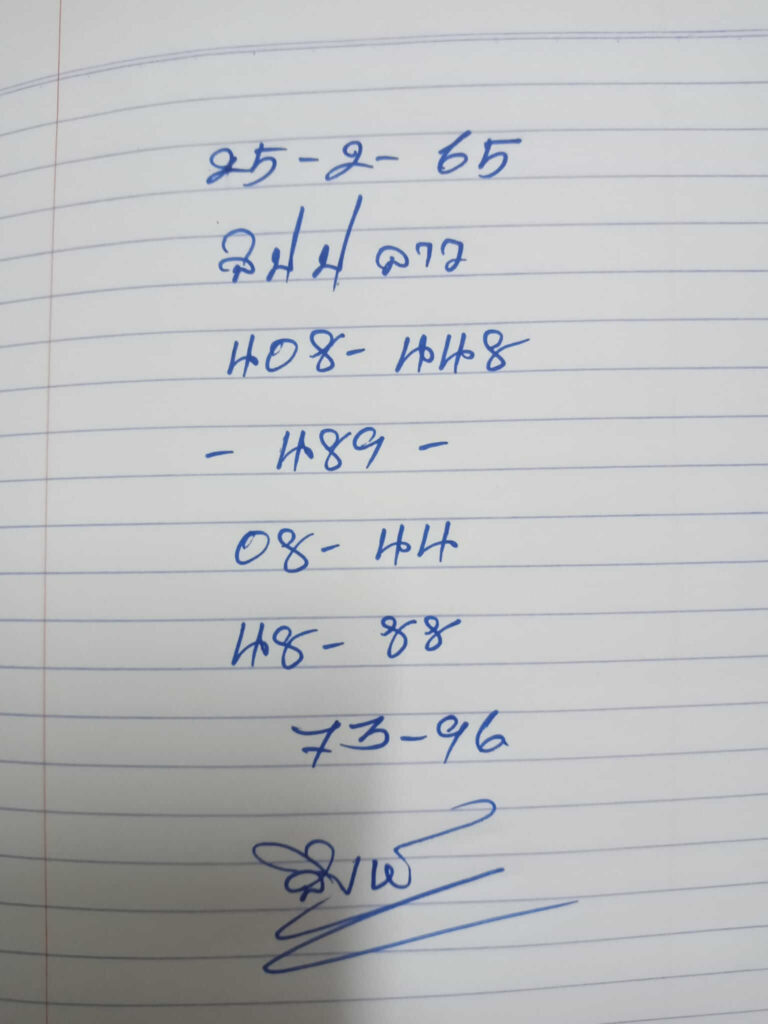 25-2-65
ลาว
408-448
- 489 -
08-44
48-88
73-96